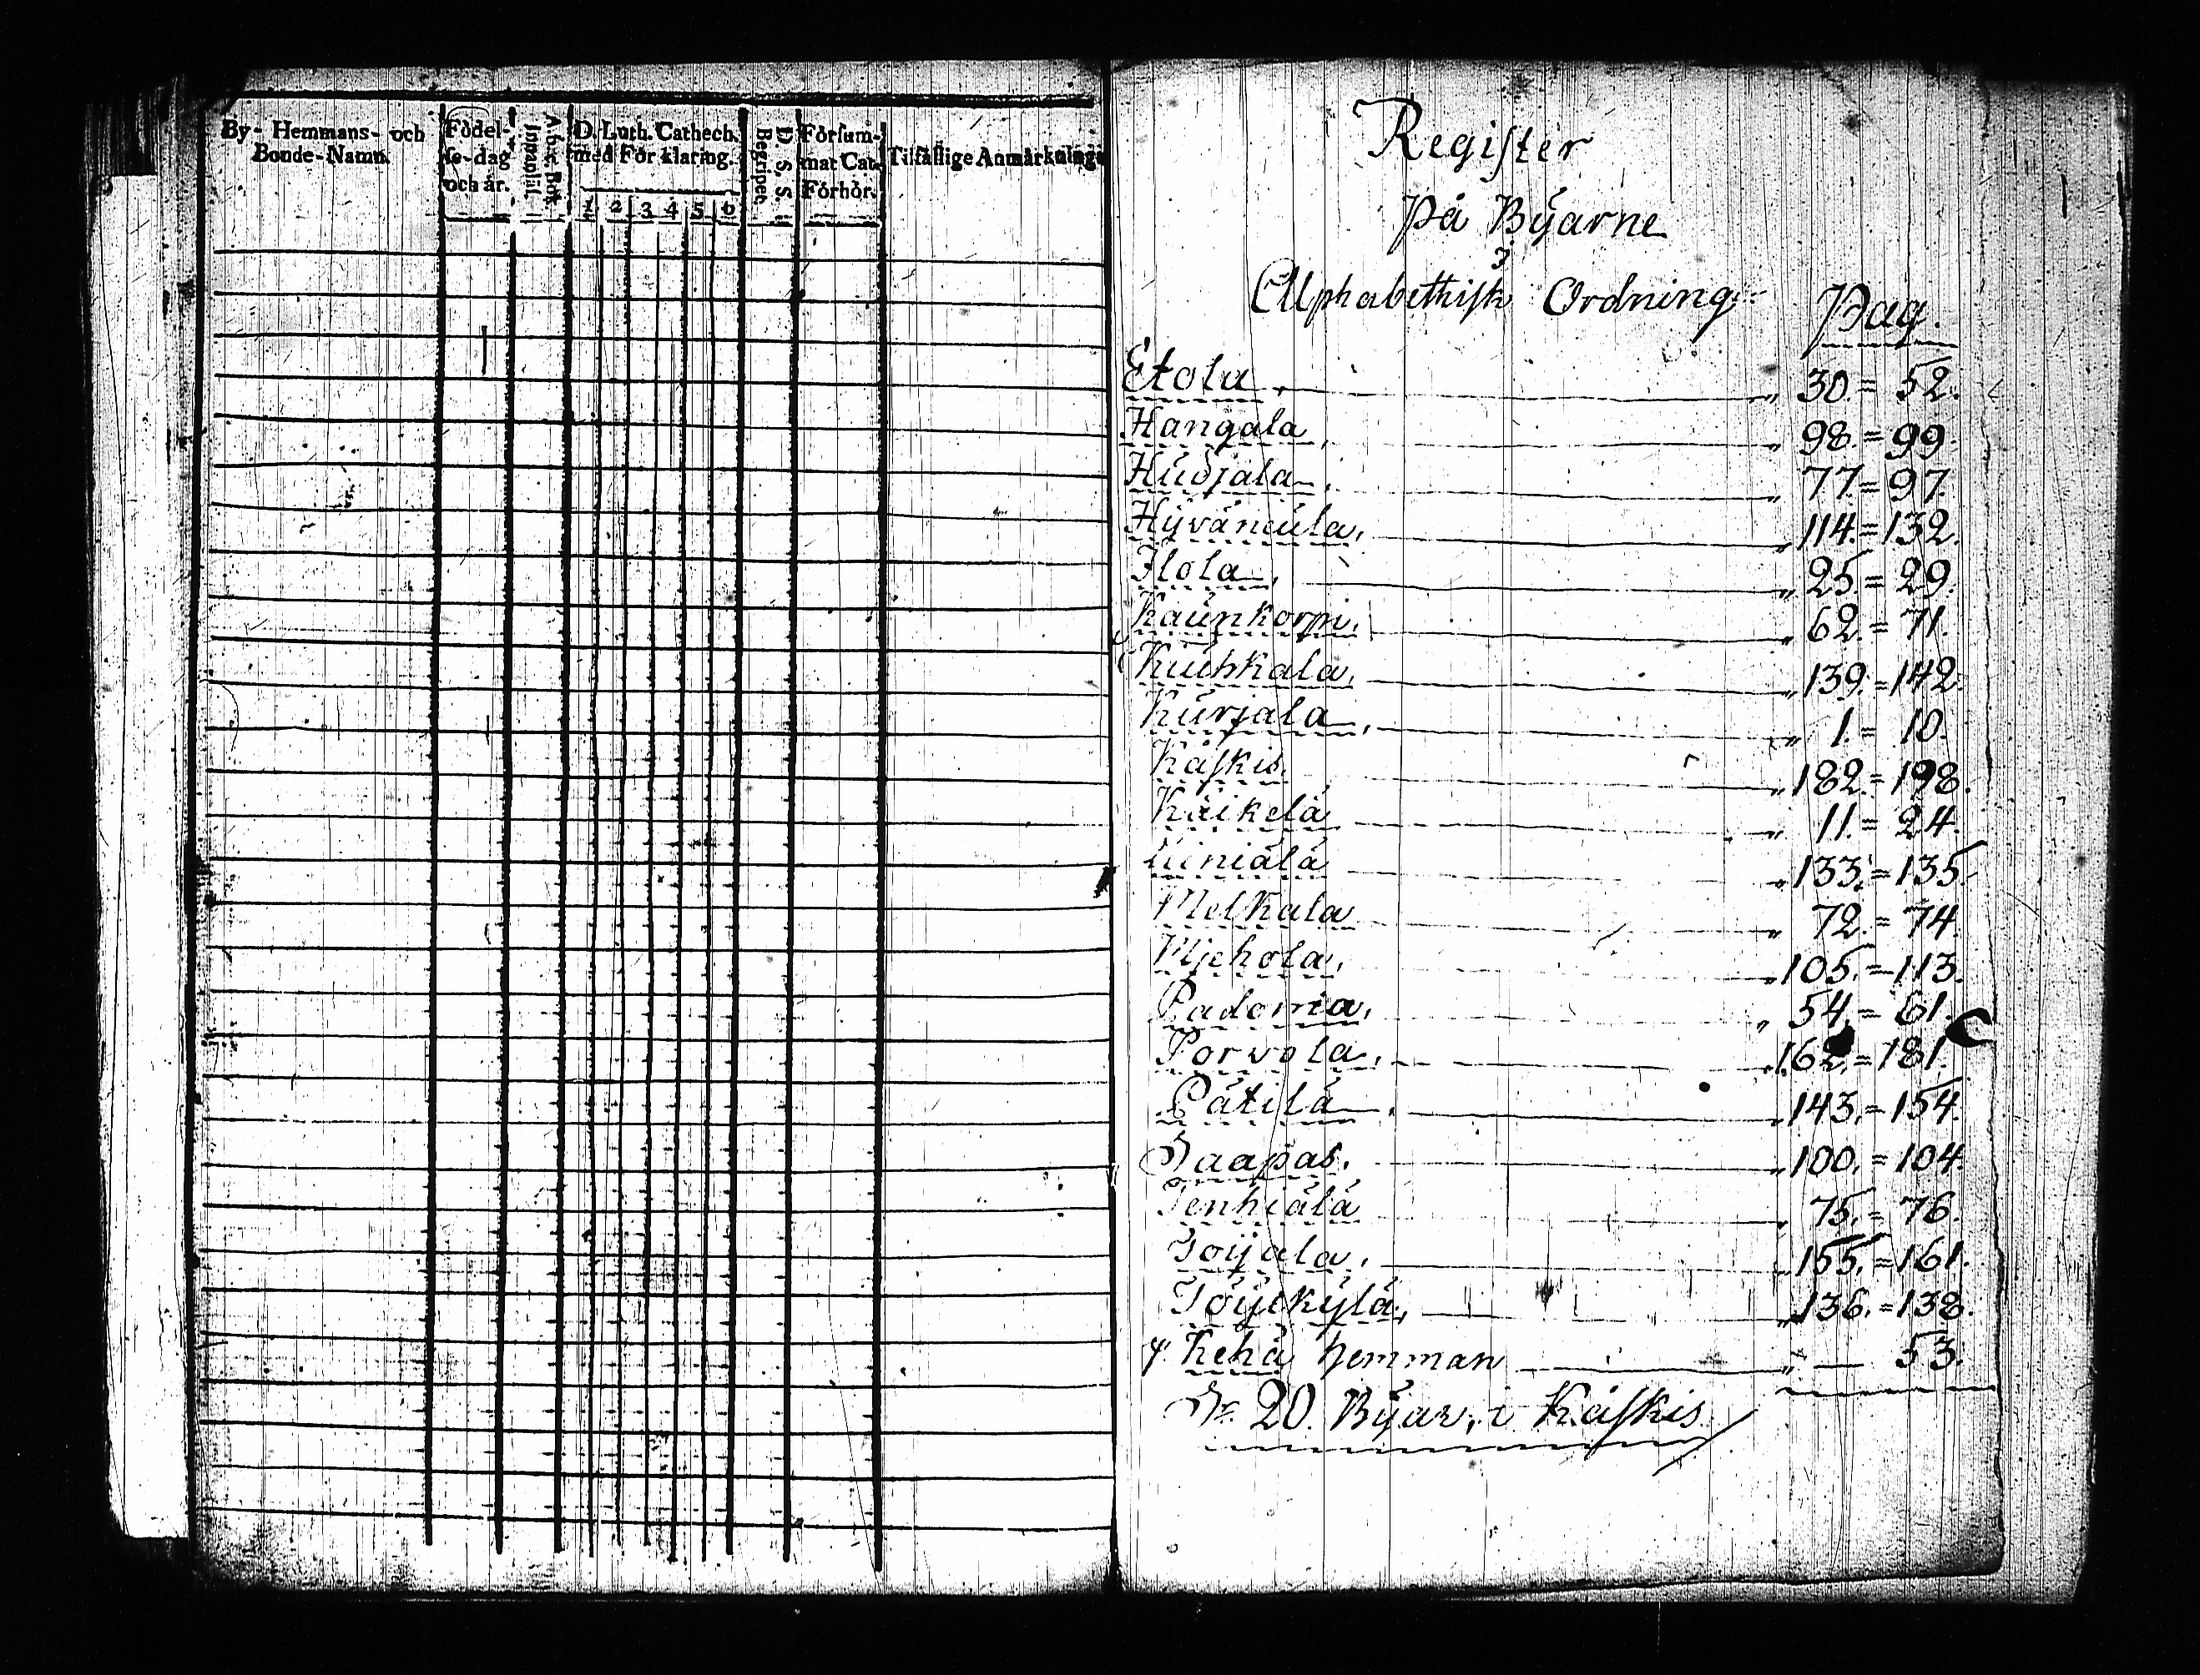 By- Hemmans- och
Bonde-Namn.
Födel-
se-dag
och år.
A. b. c. Bok
Innanläs.
D. Luth. Cathech.
med Förklaring.
1 2 3 4 5 6
D. S. S.
Begripet.
Försum-
mat Cat.
Förhör.
Tilfällige Anmärkninga
Register
På Byarne
i
Alphabethisk Ordning
Pag.
Etola. „ 30. = 52.
Hangala, „ 98. = 99.
Huojala, „ 77. = 97.
Hyväneula, „ 114. = 132.
Ilola, „ 25. = 29.
Kaunkorpi, „ 62. = 71.
Kuuhkala, „ 139. = 142.
Kurjala, „ 1. = 10.
Käskis. „ 182. = 198.
Käikelä „ 11. = 24.
Liiniälä „ 133. = 135.
Melkala „ 72. = 74.
Mjehola, „ 105. = 113.
Padonia, „ 54. = 61.
Porvola, „ 162. = 181.
Pätilä, „ 143. = 154.
Saapas, „ 100. = 104.
Tenhiälä „ 75. = 76.
Toijala, „ 155. = 161.
Töyrkylä, „ 136. = 138.
Kehä hemman „ — 53.
S:a 20. Byar, i Käskis